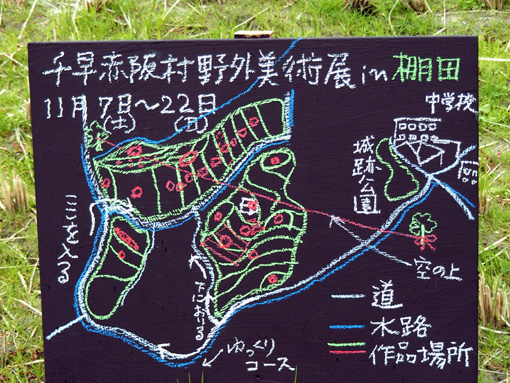 千早赤阪村野外美術展in棚田
11月7日～22日
(土) (日)
中学校
城跡公園
ここを入る
下におりる
空の上
ゆっくり
コース
道
水路
作品場所